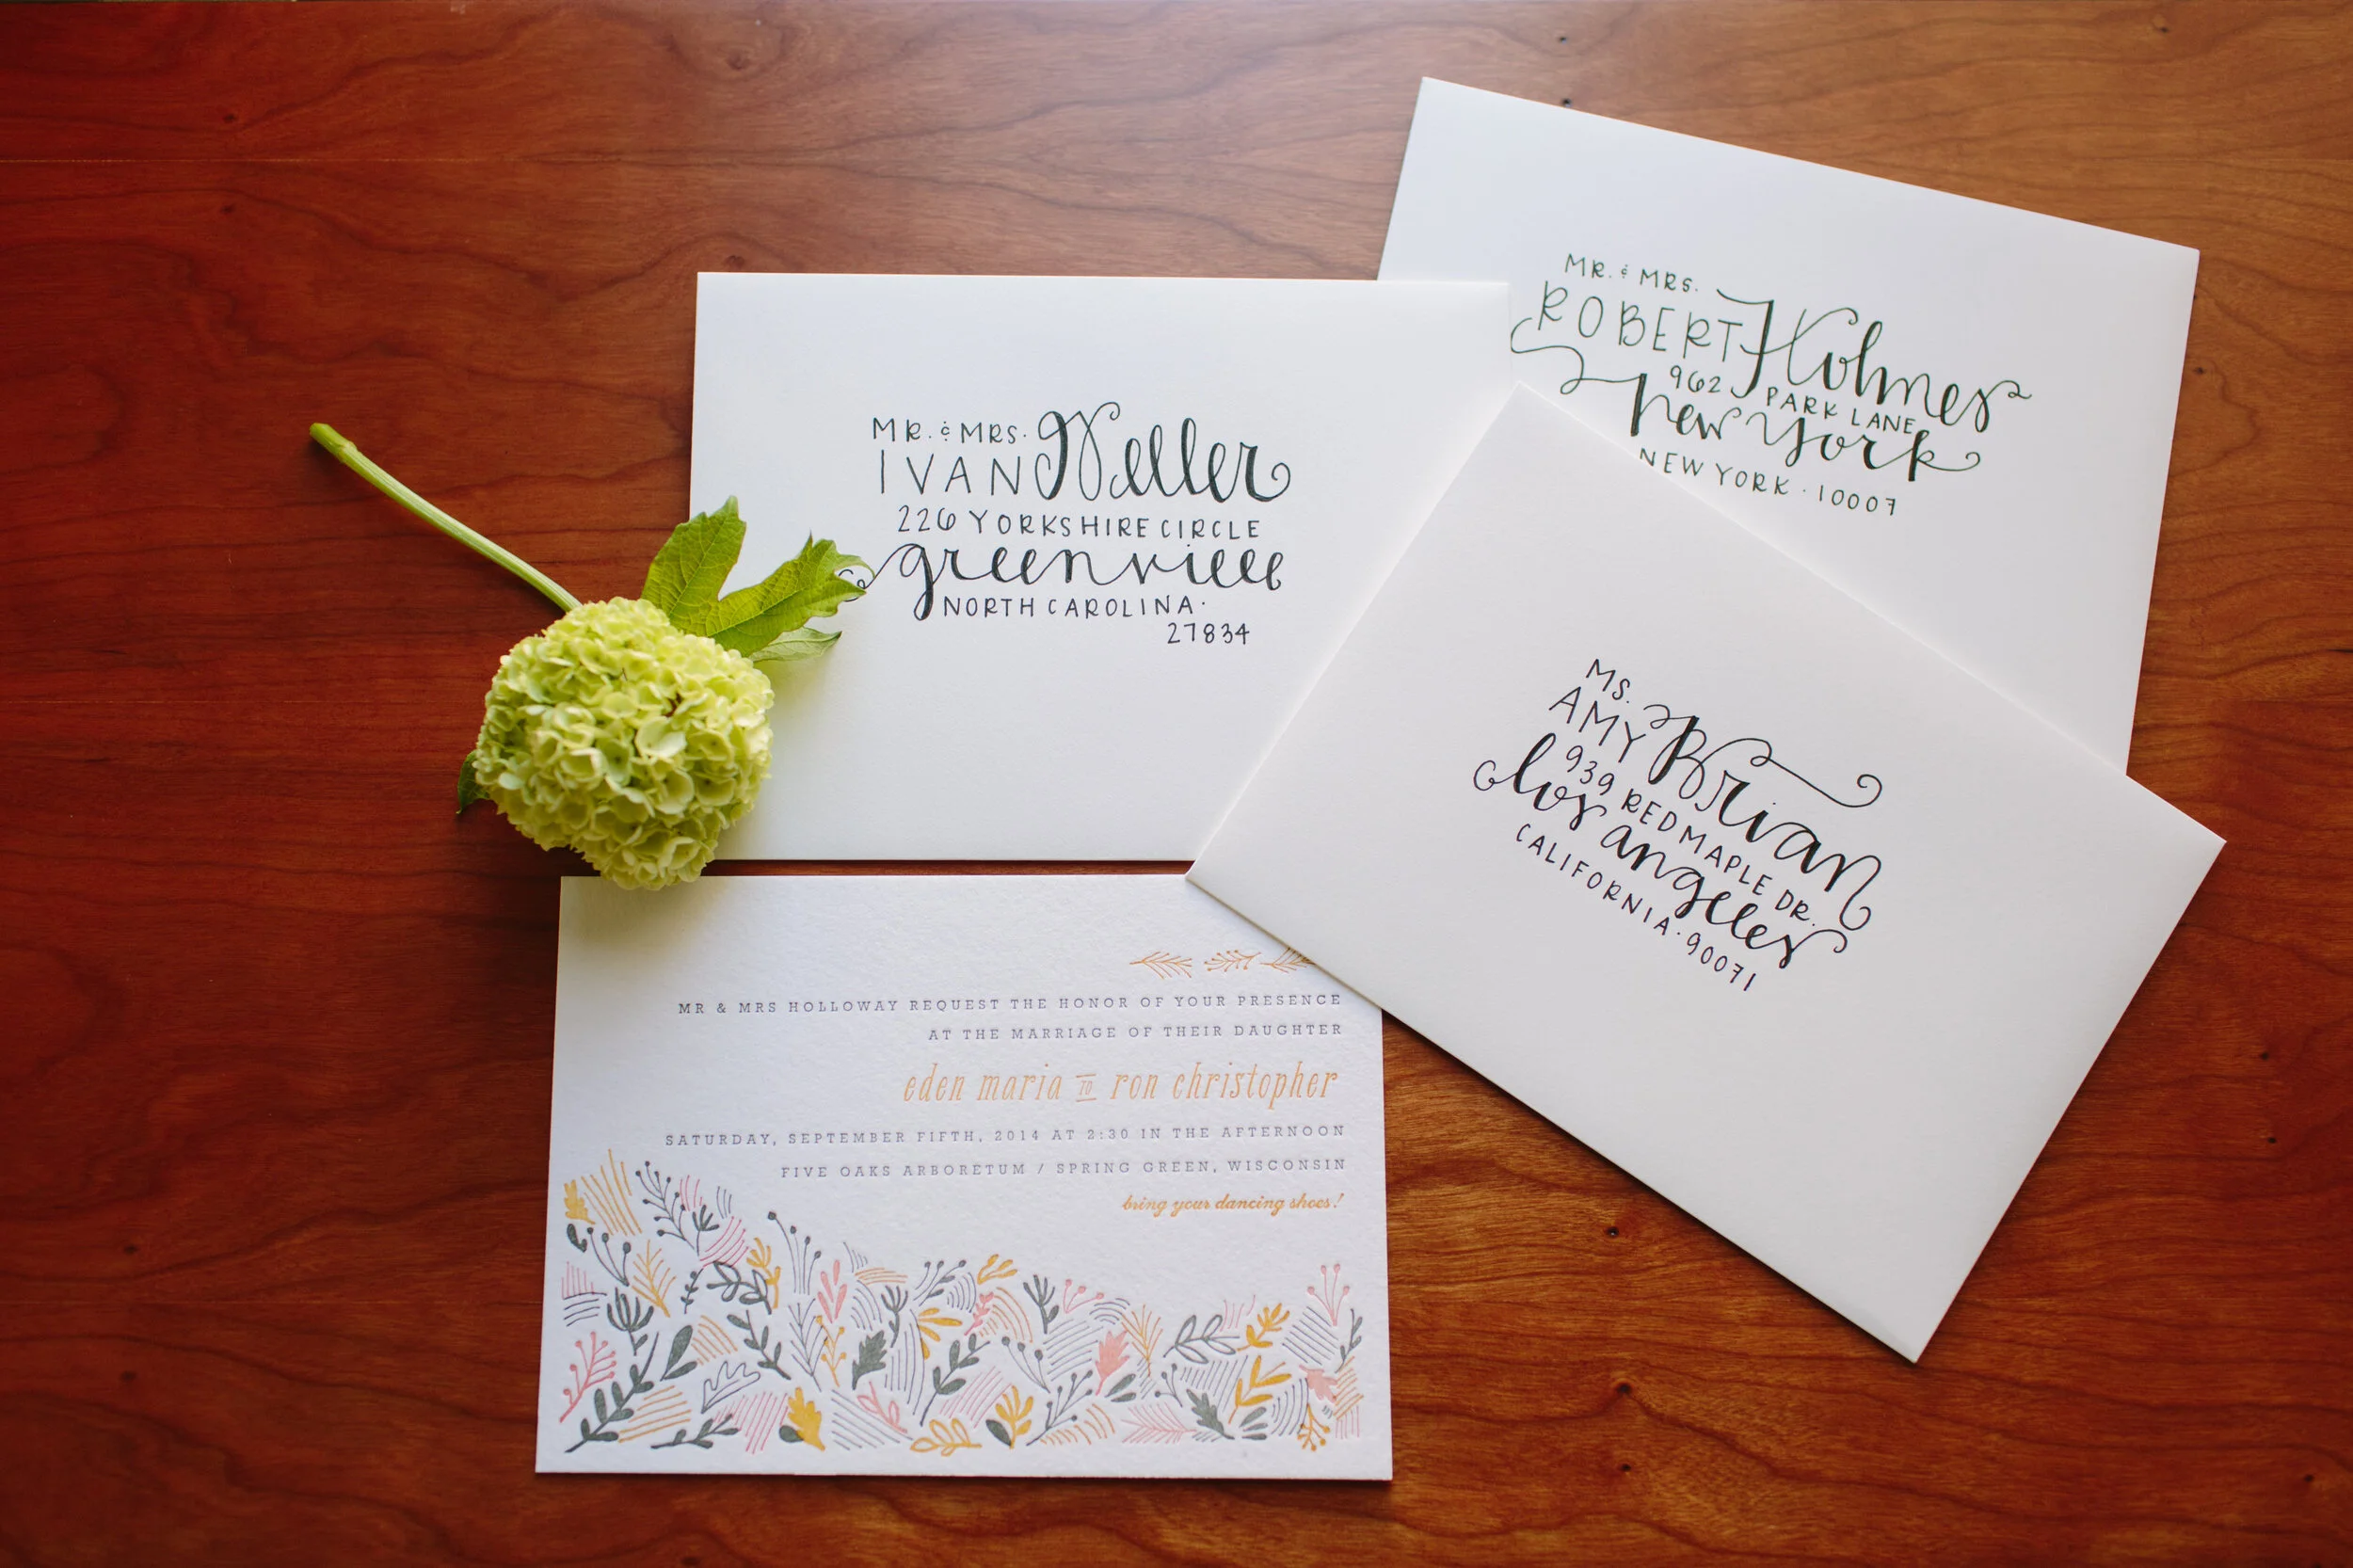 MR. & MRS.
ROBERT Holmes
962 PARK LANE
new york
NEW YORK · 10007
MR. & MRS.
IVAN Weller
226 YORKSHIRE CIRCLE
greenville
NORTH CAROLINA ·
27834
MS.
AMY Brian
939 RED MAPLE DR.
los angeles
CALIFORNIA · 90071
MR & MRS HOLLOWAY REQUEST THE HONOR OF YOUR PRESENCE
AT THE MARRIAGE OF THEIR DAUGHTER
eden maria TO ron christopher
SATURDAY, SEPTEMBER FIFTH, 2014 AT 2:30 IN THE AFTERNOON
FIVE OAKS ARBORETUM / SPRING GREEN, WISCONSIN
bring your dancing shoes!